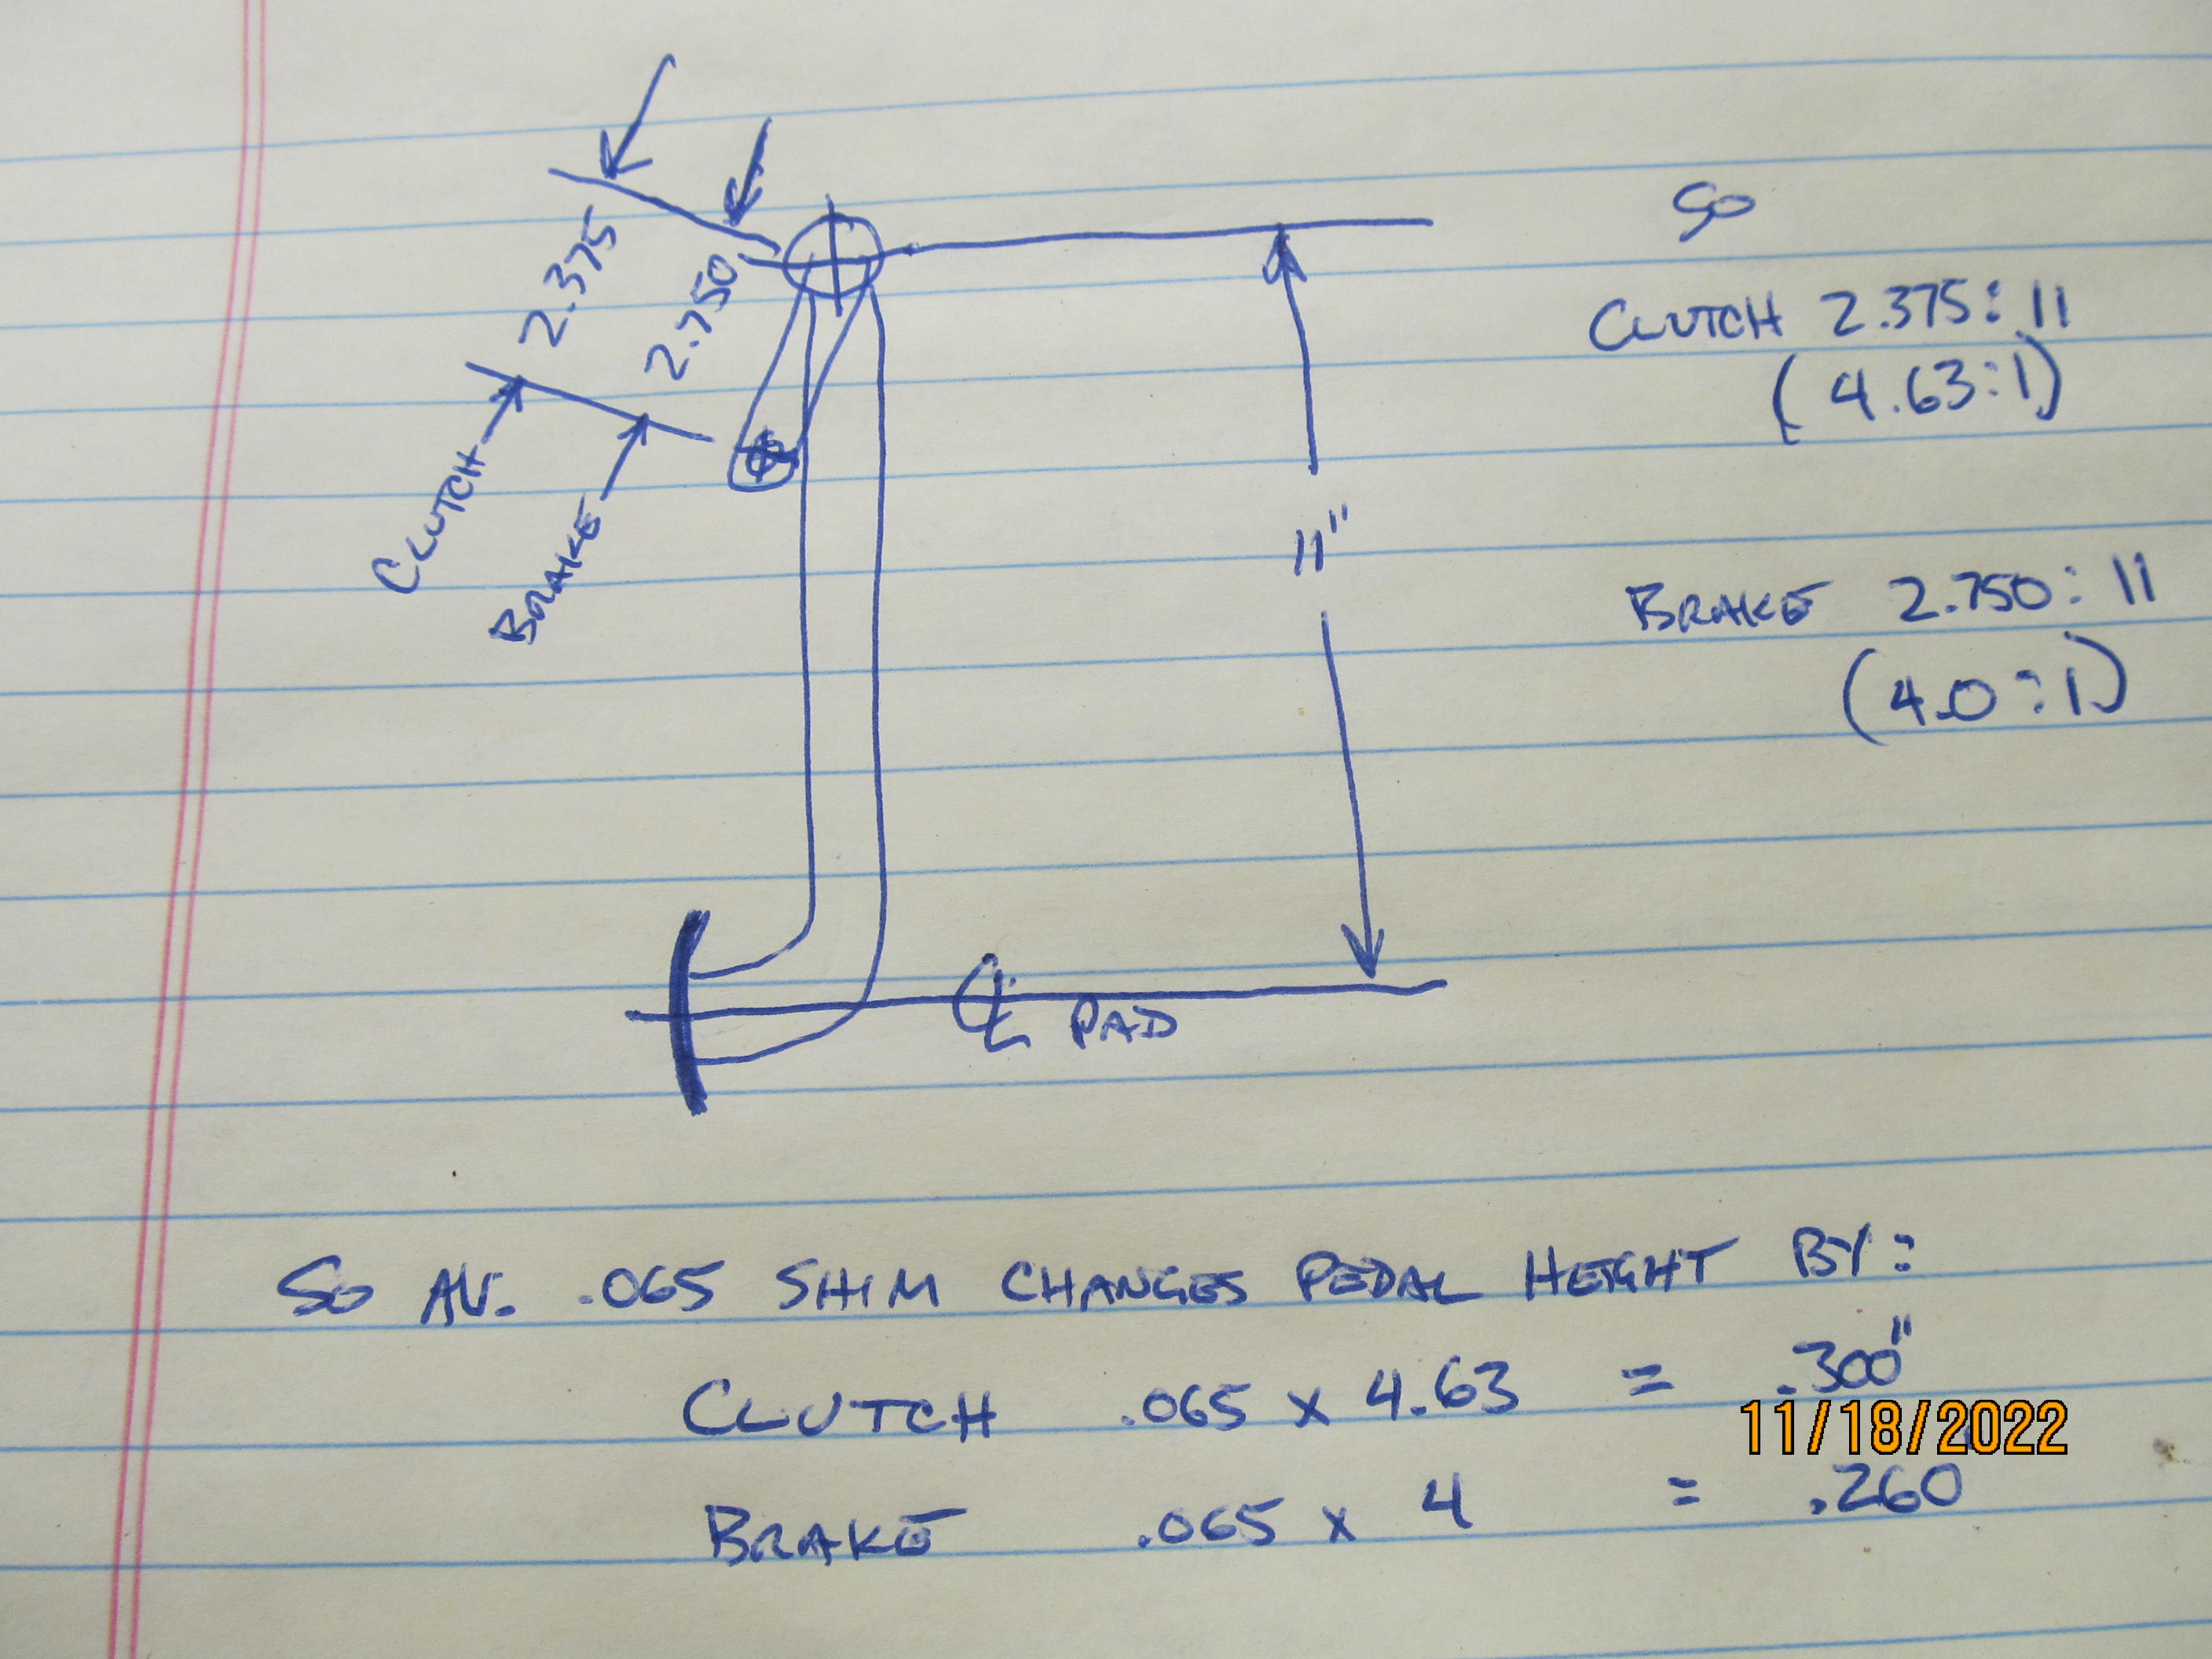 2.375
2.750
CLUTCH
BRAKE
SO
CLUTCH 2.375:11
(4.63:1)
11"
BRAKE 2.750:11
(4.0:1)
℄ PAD
SO AV. .065 SHIM CHANGES PEDAL HEIGHT BY:
CLUTCH .065 x 4.63 = .300"
11/18/2022
BRAKE .065 x 4 = .260